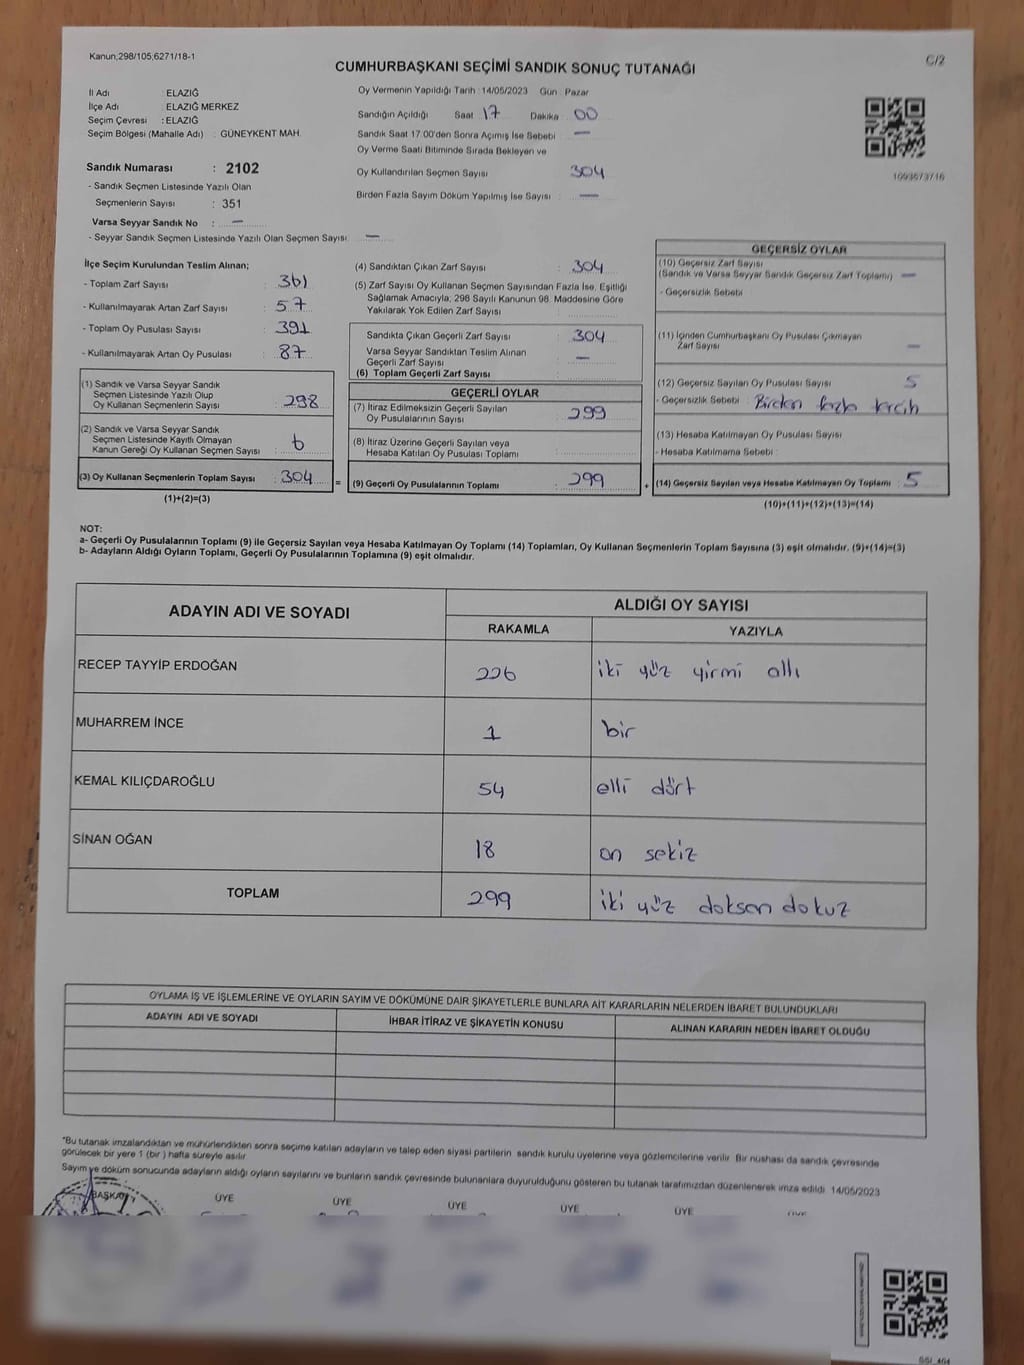 Kanun;298/105,6271/18-1
C/2
CUMHURBAŞKANI SEÇİMİ SANDIK SONUÇ TUTANAĞI
İl Adı : ELAZIĞ
İlçe Adı : ELAZIĞ MERKEZ
Seçim Çevresi : ELAZIĞ
Seçim Bölgesi (Mahalle Adı) : GÜNEYKENT MAH.
Sandık Numarası : 2102
- Sandık Seçmen Listesinde Yazılı Olan
Seçmenlerin Sayısı : 351
Varsa Seyyar Sandık No : —
- Seyyar Sandık Seçmen Listesinde Yazılı Olan Seçmen Sayısı: —
Oy Vermenin Yapıldığı Tarih : 14/05/2023 Gün : Pazar
Sandığın Açıldığı Saat : 17 Dakika : 00
Sandık Saat 17.00'den Sonra Açımış İse Sebebi : —
Oy Verme Saati Bitiminde Sırada Bekleyen ve
Oy Kullandırılan Seçmen Sayısı : 304
Birden Fazla Sayım Döküm Yapılmış İse Sayısı : —
İlçe Seçim Kurulundan Teslim Alınan;
- Toplam Zarf Sayısı : 361
- Kullanılmayarak Artan Zarf Sayısı : 57
- Toplam Oy Pusulası Sayısı : 391
- Kullanılmayarak Artan Oy Pusulası : 87
(1) Sandık ve Varsa Seyyar Sandık
Seçmen Listesinde Yazılı Olup
Oy Kullanan Seçmenlerin Sayısı : 298
(2) Sandık ve Varsa Seyyar Sandık
Seçmen Listesinde Kayıtlı Olmayan
Kanun Gereği Oy Kullanan Seçmen Sayısı : 6
(3) Oy Kullanan Seçmenlerin Toplam Sayısı : 304
(1)+(2)=(3)
(4) Sandıktan Çıkan Zarf Sayısı : 304
(5) Zarf Sayısı Oy Kullanan Seçmen Sayısından Fazla İse, Eşitliği
Sağlamak Amacıyla, 298 Sayılı Kanunun 98. Maddesine Göre
Yakılarak Yok Edilen Zarf Sayısı :
Sandıkta Çıkan Geçerli Zarf Sayısı : 304
Varsa Seyyar Sandıktan Teslim Alınan
Geçerli Zarf Sayısı : —
(6) Toplam Geçerli Zarf Sayısı :
GEÇERLİ OYLAR
(7) İtiraz Edilmeksizin Geçerli Sayılan
Oy Pusulalarının Sayısı : 299
(8) İtiraz Üzerine Geçerli Sayılan veya
Hesaba Katılan Oy Pusulası Toplamı :
= (9) Geçerli Oy Pusulalarının Toplamı : 299
GEÇERSİZ OYLAR
(10) Geçersiz Zarf Sayısı
(Sandık ve Varsa Seyyar Sandık Geçersiz Zarf Toplamı) : —
- Geçersizlik Sebebi :
(11) İçinden Cumhurbaşkanı Oy Pusulası Çıkmayan
Zarf Sayısı : —
(12) Geçersiz Sayılan Oy Pusulası Sayısı : 5
- Geçersizlik Sebebi : Birden fazla tercih
(13) Hesaba Katılmayan Oy Pusulası Sayısı :
- Hesaba Katılmama Sebebi :
+ (14) Geçersiz Sayılan veya Hesaba Katılmayan Oy Toplamı : 5
(10)+(11)+(12)+(13)=(14)
NOT:
a- Geçerli Oy Pusulalarının Toplamı (9) ile Geçersiz Sayılan veya Hesaba Katılmayan Oy Toplamı (14) Toplamları, Oy Kullanan Seçmenlerin Toplam Sayısına (3) eşit olmalıdır. (9)+(14)=(3)
b- Adayların Aldığı Oyların Toplamı, Geçerli Oy Pusulalarının Toplamına (9) eşit olmalıdır.
ADAYIN ADI VE SOYADI
ALDIĞI OY SAYISI
RAKAMLA YAZIYLA
RECEP TAYYİP ERDOĞAN 226 iki yüz yirmi altı
MUHARREM İNCE 1 bir
KEMAL KILIÇDAROĞLU 54 elli dört
SİNAN OĞAN 18 on sekiz
TOPLAM 299 iki yüz doksan dokuz
OYLAMA İŞ VE İŞLEMLERİNE VE OYLARIN SAYIM VE DÖKÜMÜNE DAİR ŞİKAYETLERLE BUNLARA AİT KARARLARIN NELERDEN İBARET BULUNDUKLARI
ADAYIN ADI VE SOYADI İHBAR İTİRAZ VE ŞİKAYETİN KONUSU ALINAN KARARIN NEDEN İBARET OLDUĞU
*Bu tutanak imzalandıktan ve mühürlendikten sonra seçime katılan adayların ve talep eden siyasi partilerin sandık kurulu üyelerine veya gözlemcilerine verilir. Bir nüshası da sandık çevresinde
görülecek bir yere 1 (bir ) hafta süreyle asılır.
Sayım ve döküm sonucunda adayların aldığı oyların sayılarını ve bunların sandık çevresinde bulunanlara duyurulduğunu gösteren bu tutanak tarafımızdan düzenlenerek imza edildi. 14/05/2023
BAŞKAN ÜYE ÜYE ÜYE ÜYE ÜYE